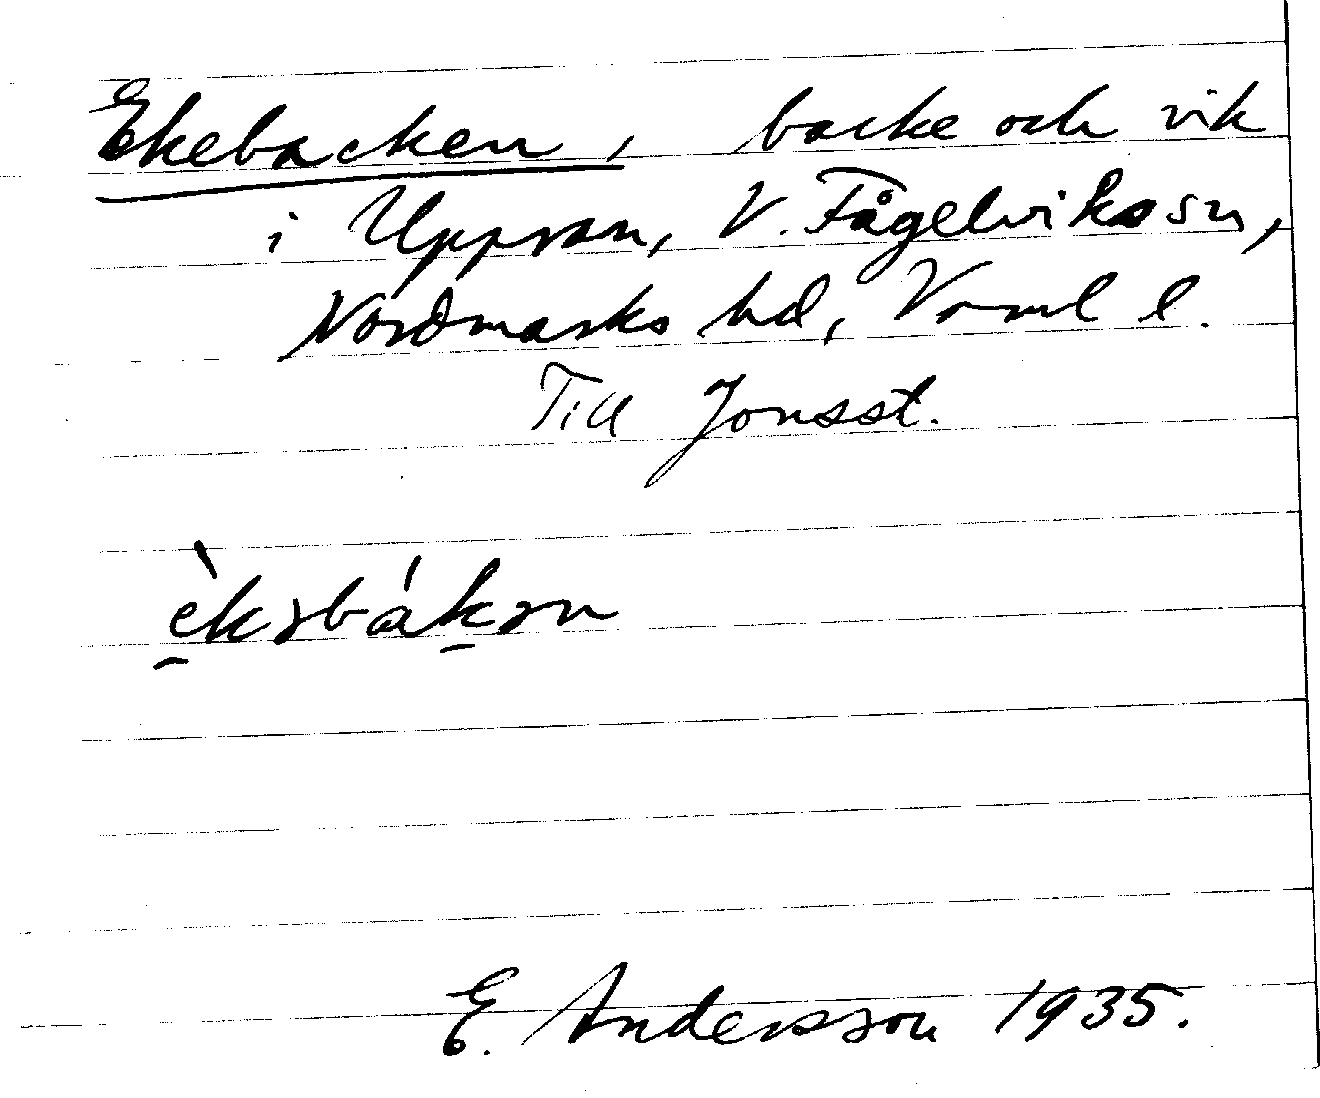 Ekebacken, backe och vik
i Uppsan, V. Fågelviks sn,
Nordmarks hd, Värml l.
Till Jonsst.
èkəbákən
E. Andersson 1935.